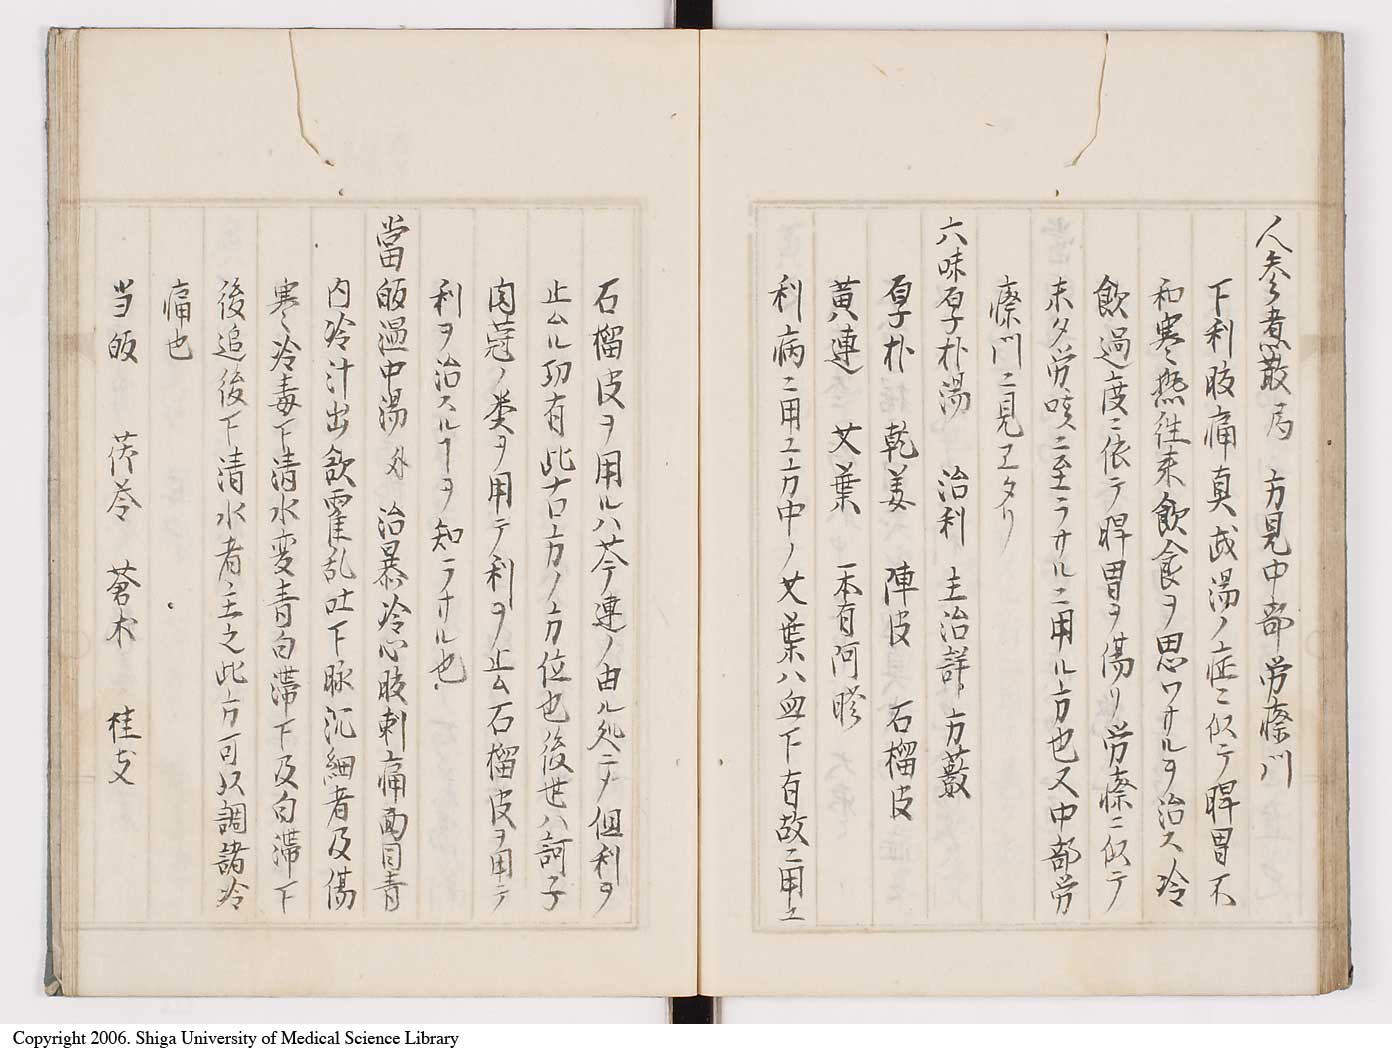 人参煮散 局 方見中部労瘵門
下利腹痛真武湯ノ症ニ似テ脾胃不
和寒熱往来飲食ヲ思ワサルヲ治ス冷
飲過度ニ依テ脾胃ヲ傷リ労瘵ニ似テ
未タ労咳ニ至ラサルニ用ル方也又中部労
瘵門ニ見エタリ
六味厚朴湯 治利 主治詳方藪
厚朴 乾姜 陳皮 石榴皮
黄連 艾葉 一本有阿膠
利病ニ用ユ方中ノ艾葉ハ血下有故ニ用ユ
石榴皮ヲ用ルハ芩連ノ由ル処ニテ但利ヲ
止ムル功有此古方ノ方位也後世ハ訶子
肉蔻ノ类ヲ用テ利ヲ止ム石榴皮ヲ用テ
利ヲ治スルヿヲ知ラサル也
當皈温中湯 外 治暴冷心腹刺痛面目青
肉冷汁出飲霍乱吐下脉沉細者及傷
寒冷毒下清水変青白滞下及白滞下
後追後下清水者主之此方可以調諸冷
痛也
当皈 茯苓 蒼朮 桂支
Copyright 2006. Shiga University of Medical Science Library